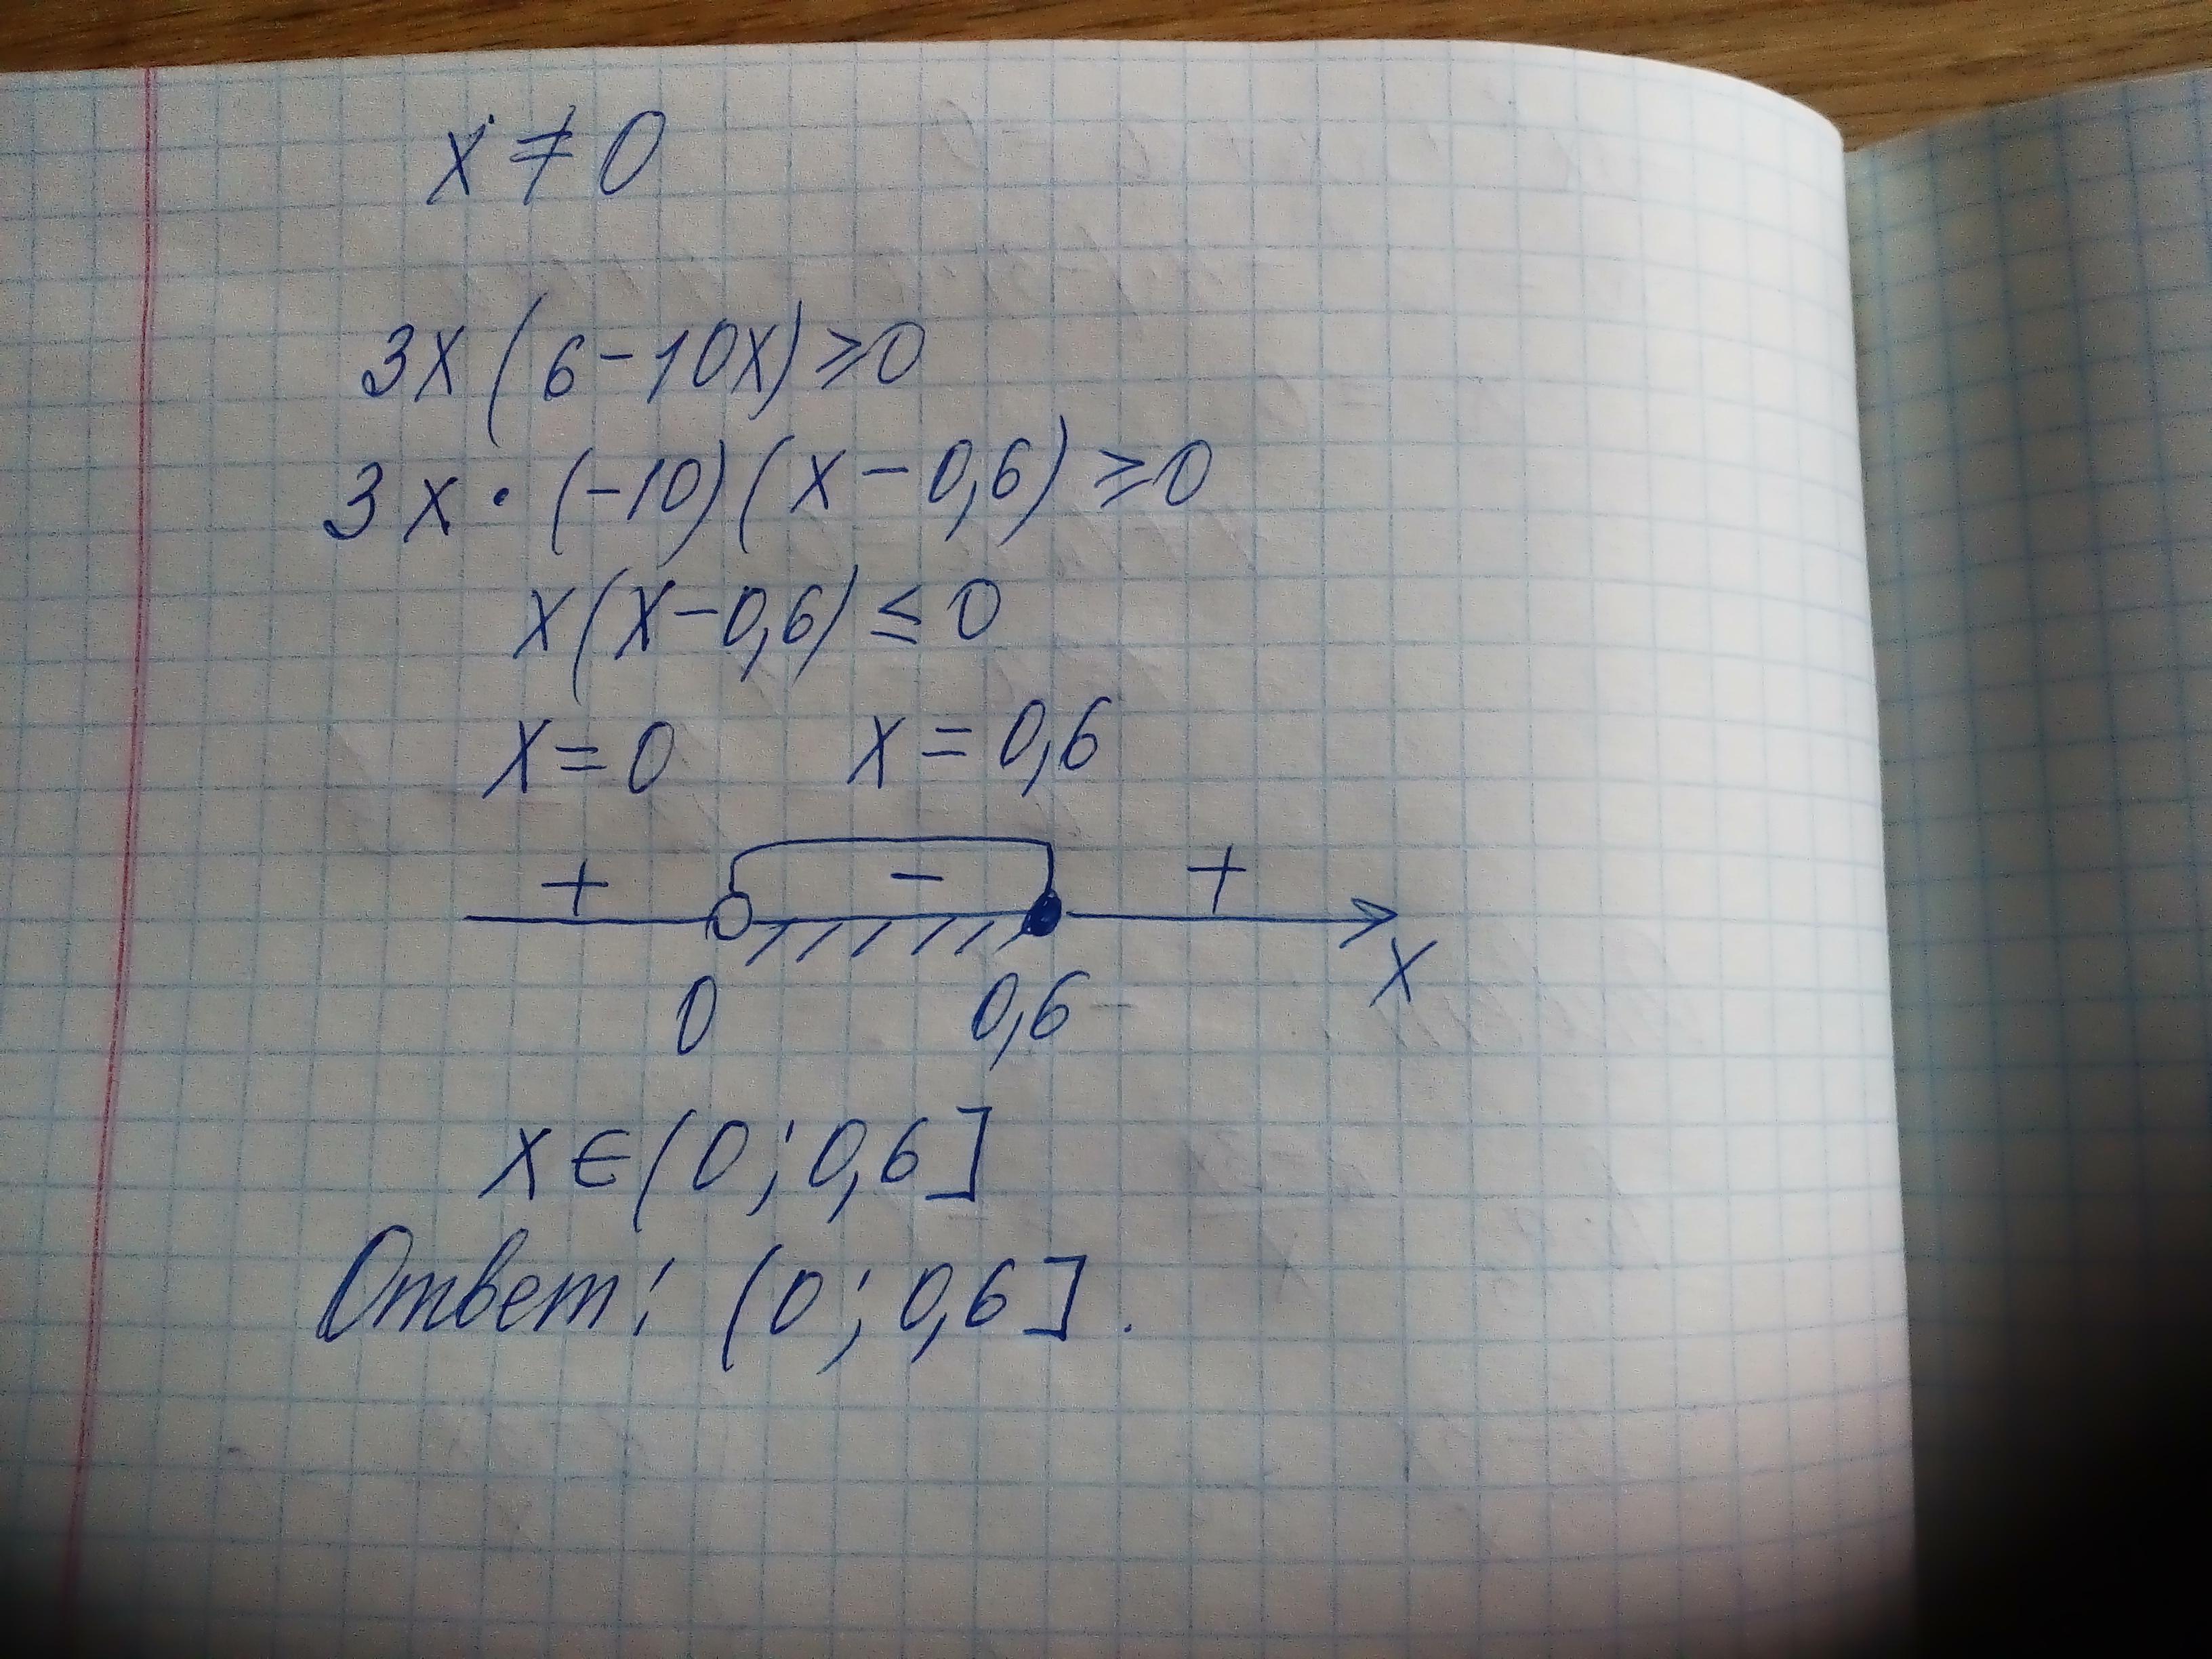 x ≠ 0
3x(6-10x)≥0
3x·(-10)(x-0,6)≥0
x(x-0,6)≤0
x=0 x=0,6
+ - +
0 0,6 x
x∈(0;0,6]
Ответ: (0;0,6].